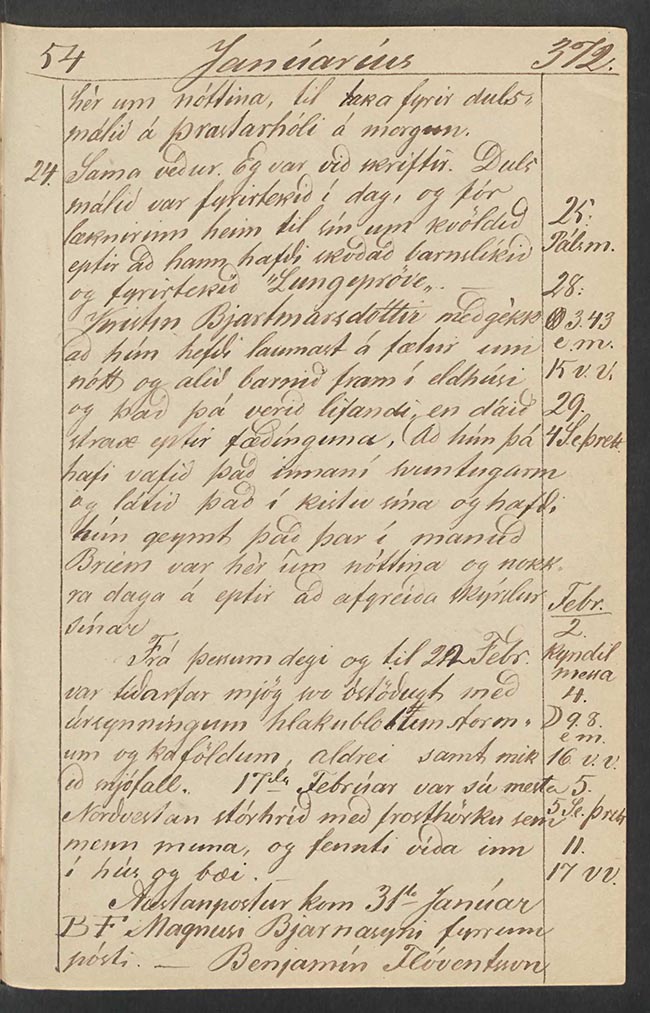 54 Januarius 372.
hér um nóttina, til taka fyrir duls-
málið á Þrastarhóli á morgun.
24. Sama veður. Eg var við skriftir. Duls
málið var fyrirtekið í dag, og fór
læknirinn heim til sín um kvöldið
eptir að hann hafði skoðað barnslíkið
og fyrirtekið "Lungeprøve". —
Kristín Bjartmarsdóttir meðgékk
að hún hefði laumast á fætur um
nótt og alið barnið fram í eldhúsi
og það þá verið lifandi, en dáið
strax eptir fæðínguna, Að hún þá
hafi vafið það innaní svuntugarm
og látið það í kistu sína og hafði
hún geymt það þar í mánuð
Briem var hér um nóttina og nokk-
ra daga á eptir að afgreiða skýrslur
sínar
Frá þessum degi og til 22 Febr.
var tíðarfar mjög svo óstöðugt með
útsynningum hlakublotum storm-
um og kaföldum, aldrei samt mik
ið snjófall. 17da Febrúar var sú mesta
Norðvestan stórhríð með frosthörku sem
menn muna, og fennti víða inn
í hús og bæi. —
Austanpostur kom 31ta Janúar
BF Magnusi Bjarnasyni fyrrum
pósti. — Benjamín Flóventsson
25.
Pálsm.
28:
3.43
e m.
15 v. v.
29.
4 S e þrett.
Febr.
2.
Kyndil
messa
4.
9.8.
e m.
16 v. v.
5.
5 S e. þrett
11.
17 v v.